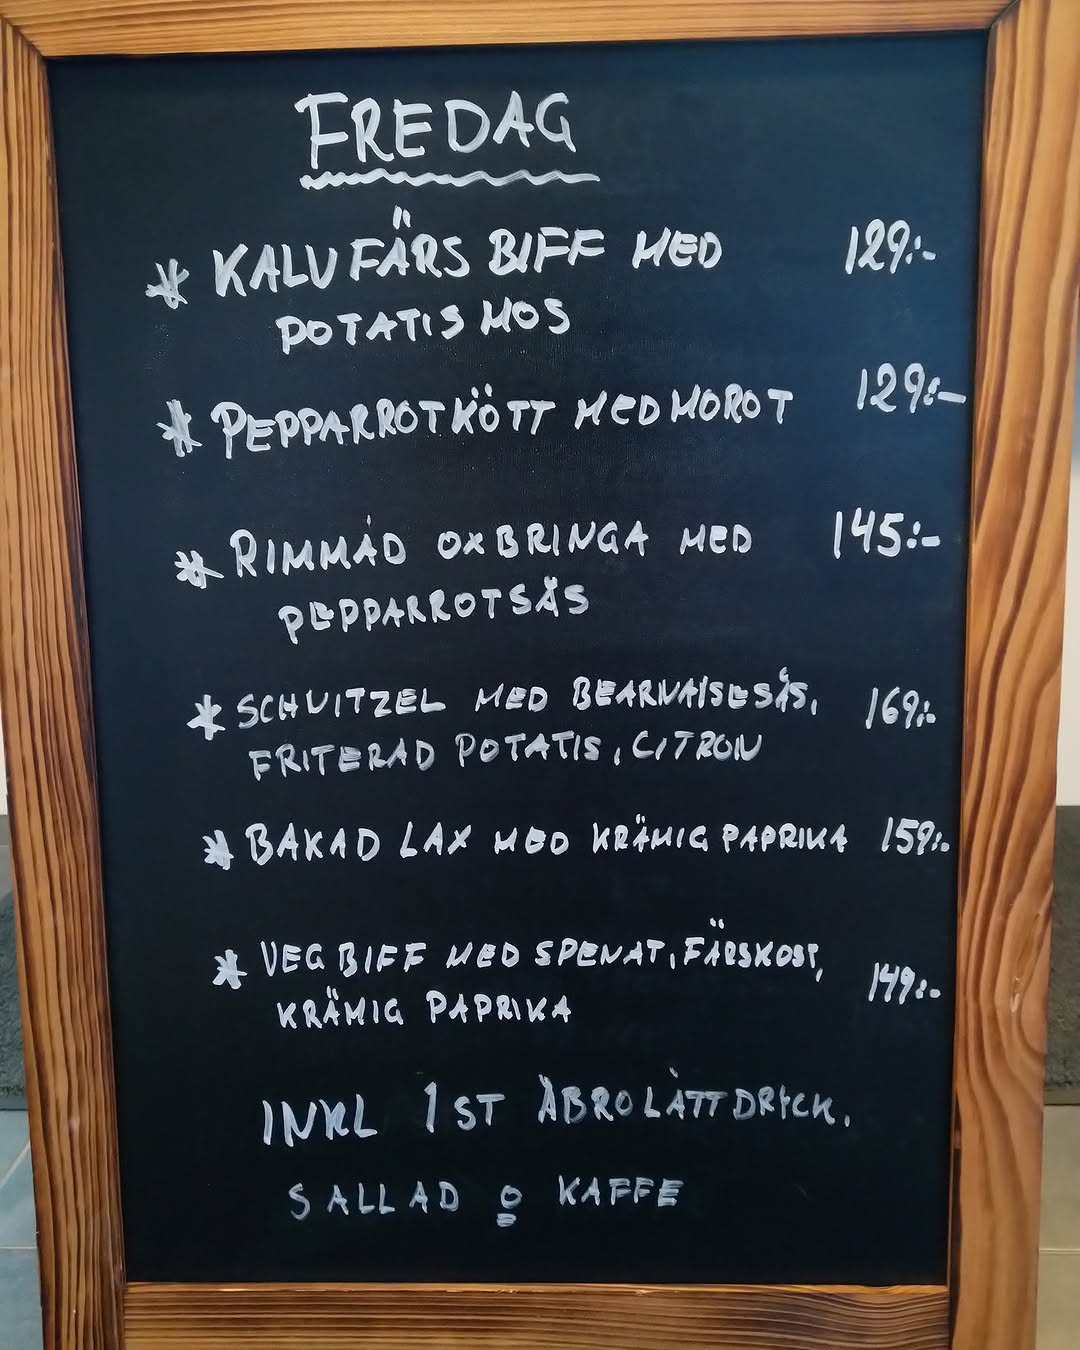 FREDAG
* KALVFÄRS BIFF MED 129:-
POTATISMOS
* PEPPARROTKÖTT MED MOROT 129:-
* RIMMAD OXBRINGA MED 145:-
PEPPARROTSÅS
* SCHNITZEL MED BEARNAISESÅS, 169:-
FRITERAD POTATIS, CITRON
* BAKAD LAX MED KRÄMIG PAPRIKA 159:-
* VEG BIFF MED SPENAT, FÄRSKOST, 149:-
KRÄMIG PAPRIKA
INKL 1 ST ÅBRO LÄTTDRYCK,
SALLAD o KAFFE